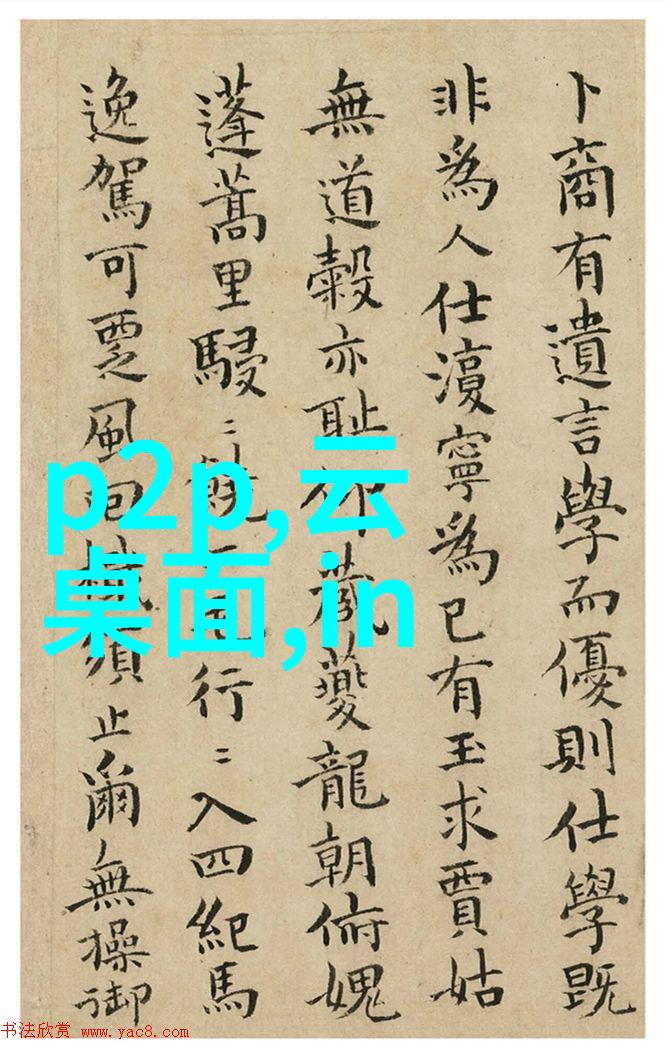 卜商有遺言學而優則仕學既
非爲人仕寧爲已有玉求賈姑
無道穀亦恥夔龍朝俯媿
蓬蒿里駸二行二入四紀馬
逸駕可覂風須止爾無操御
p2p,云
桌面,in
书法欣赏 www.yac8.com